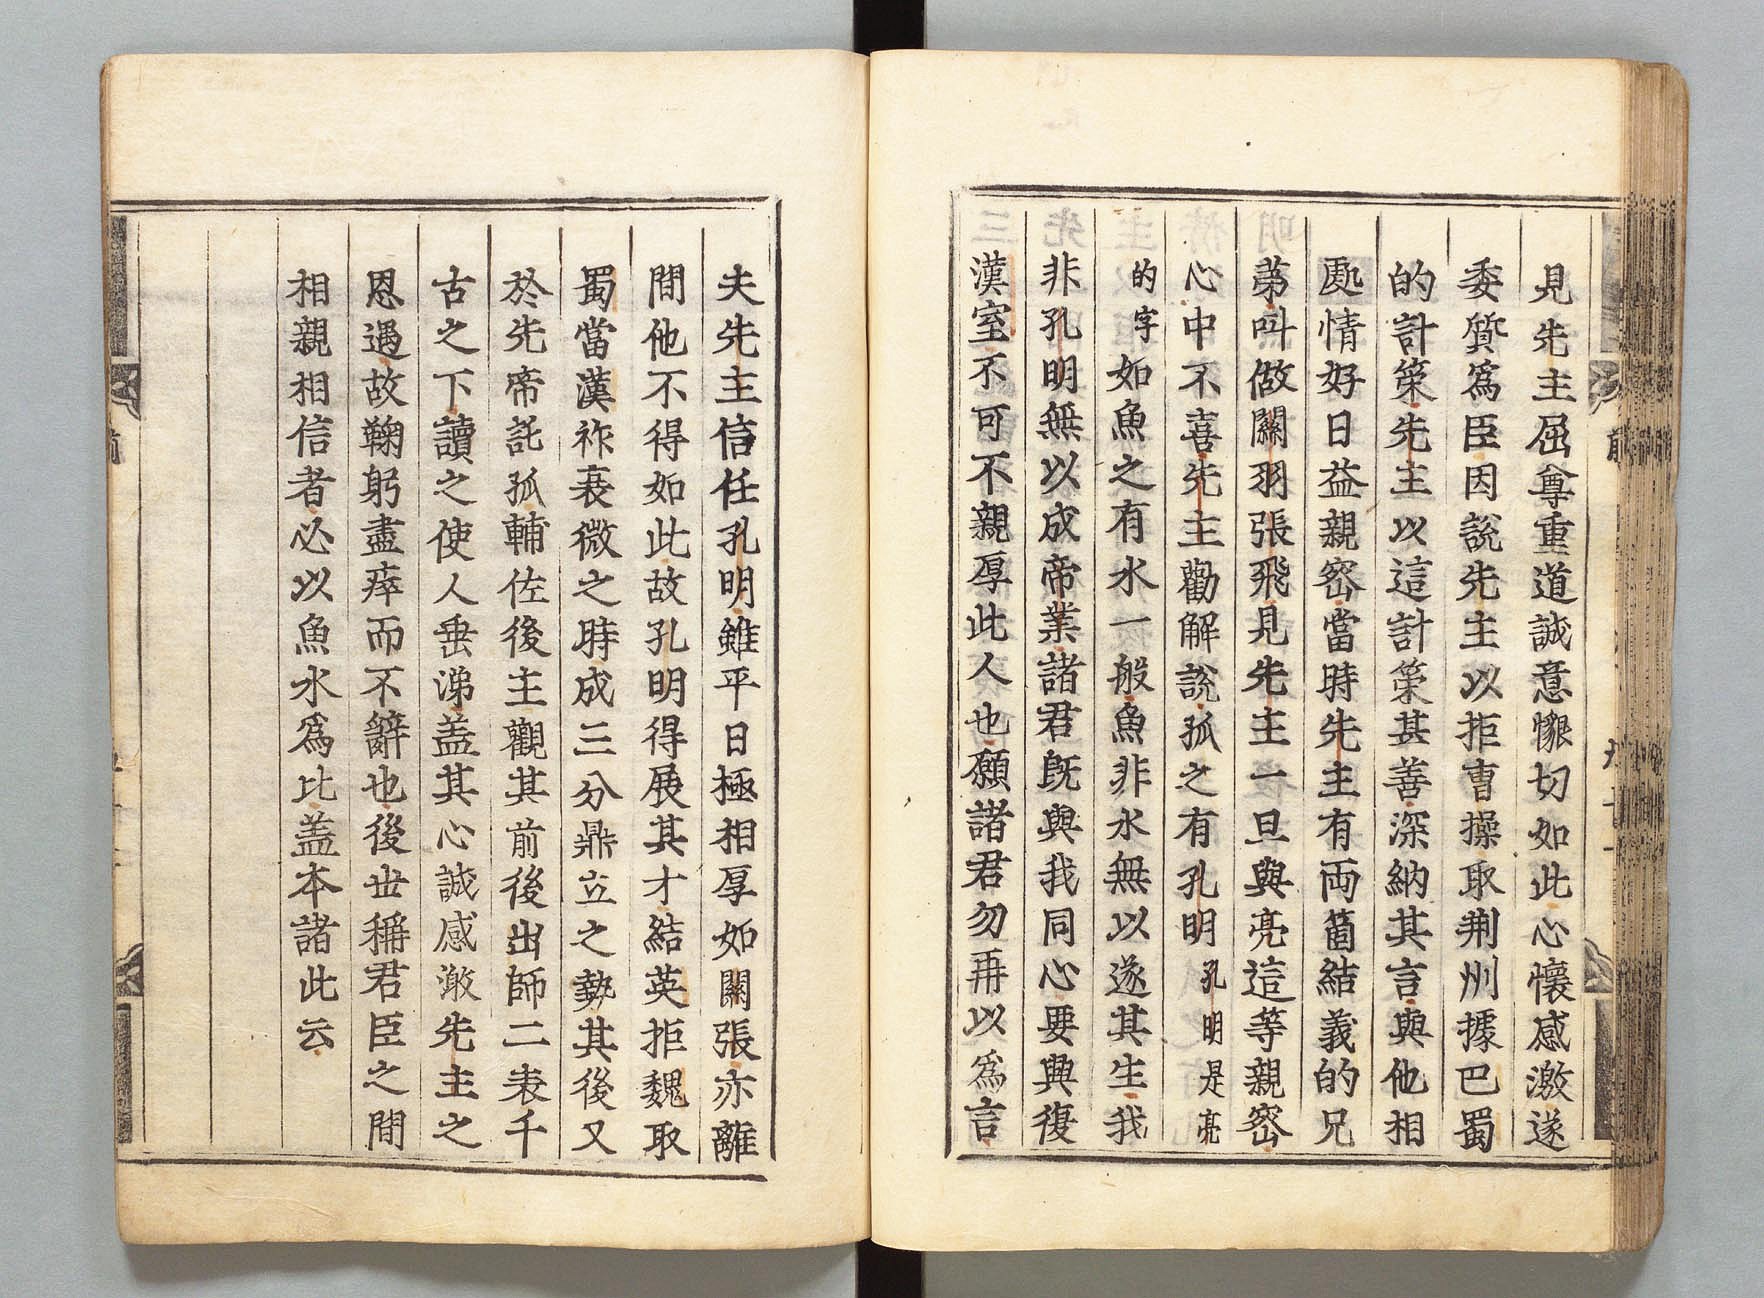 見先主屈尊重道誠意懇切如此心懷感激遂
委質爲臣因說先主以拒曹操取荆州據巴蜀
的計策先主以這計策甚善深納其言與他相
處情好日益親密當時先主有両箇結義的兄
弟叫做關羽張飛見先主一旦與亮這等親密
心中不喜先主勸解說孤之有孔明孔明是亮
的字如魚之有水一般魚非水無以遂其生我
非孔明無以成帝業諸君旣與我同心要興復
漢室不可不親厚此人也願諸君勿再以爲言
夫先主信任孔明雖平日極相厚如關張亦離
間他不得如此故孔明得展其才結英拒魏取
蜀當漢祚衰微之時成三分鼎立之勢其後又
於先帝託孤輔佐後主觀其前後出師二表千
古之下讀之使人垂涕盖其心誠感激先主之
恩遇故鞠躬盡瘁而不辭也後世稱君臣之間
相親相信者必以魚水爲比盖本諸此云